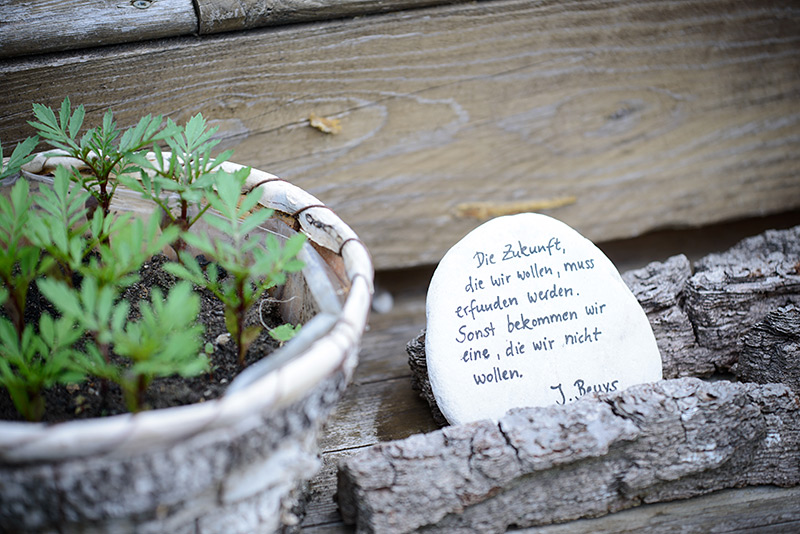 Die Zukunft,
die wir wollen, muss
erfunden werden.
Sonst bekommen wir
eine, die wir nicht
wollen.
J. Beuys